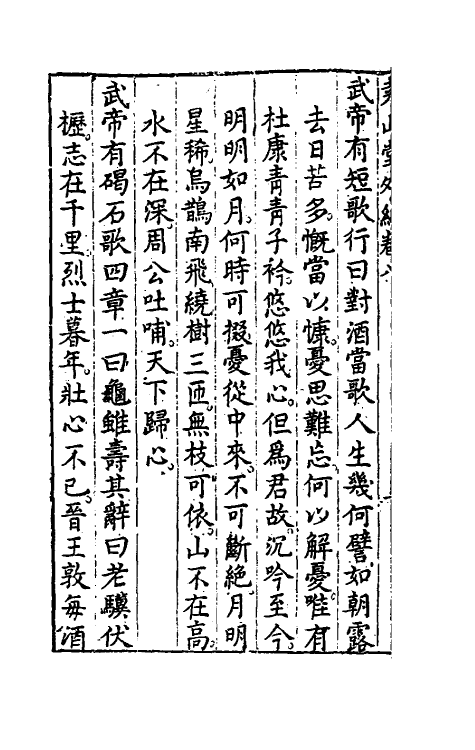 堯山堂外紀卷八
武帝有短歌行曰對酒當歌人生幾何譬如朝露
去日苦多慨當以慷憂思難忘何以解憂唯有
杜康青青子衿悠悠我心但爲君故沉吟至今
明明如月何時可掇憂從中來不可斷絶月明
星稀烏鵲南飛繞樹三匝無枝可依山不在高
水不在深周公吐哺天下歸心
武帝有碣石歌四章一曰龜雖壽其辭曰老驥伏
櫪志在千里烈士暮年壯心不已晉王敦每酒